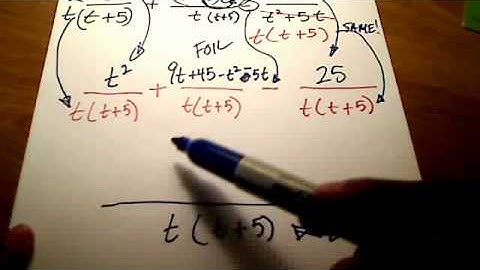 t(t+5) + t(t+5) t²+5t
t(t+5) SAME!
FOIL
t² 9t+45-t²-5t 25
t(t+5) + t(t+5) - t(t+5)
t(t+5)